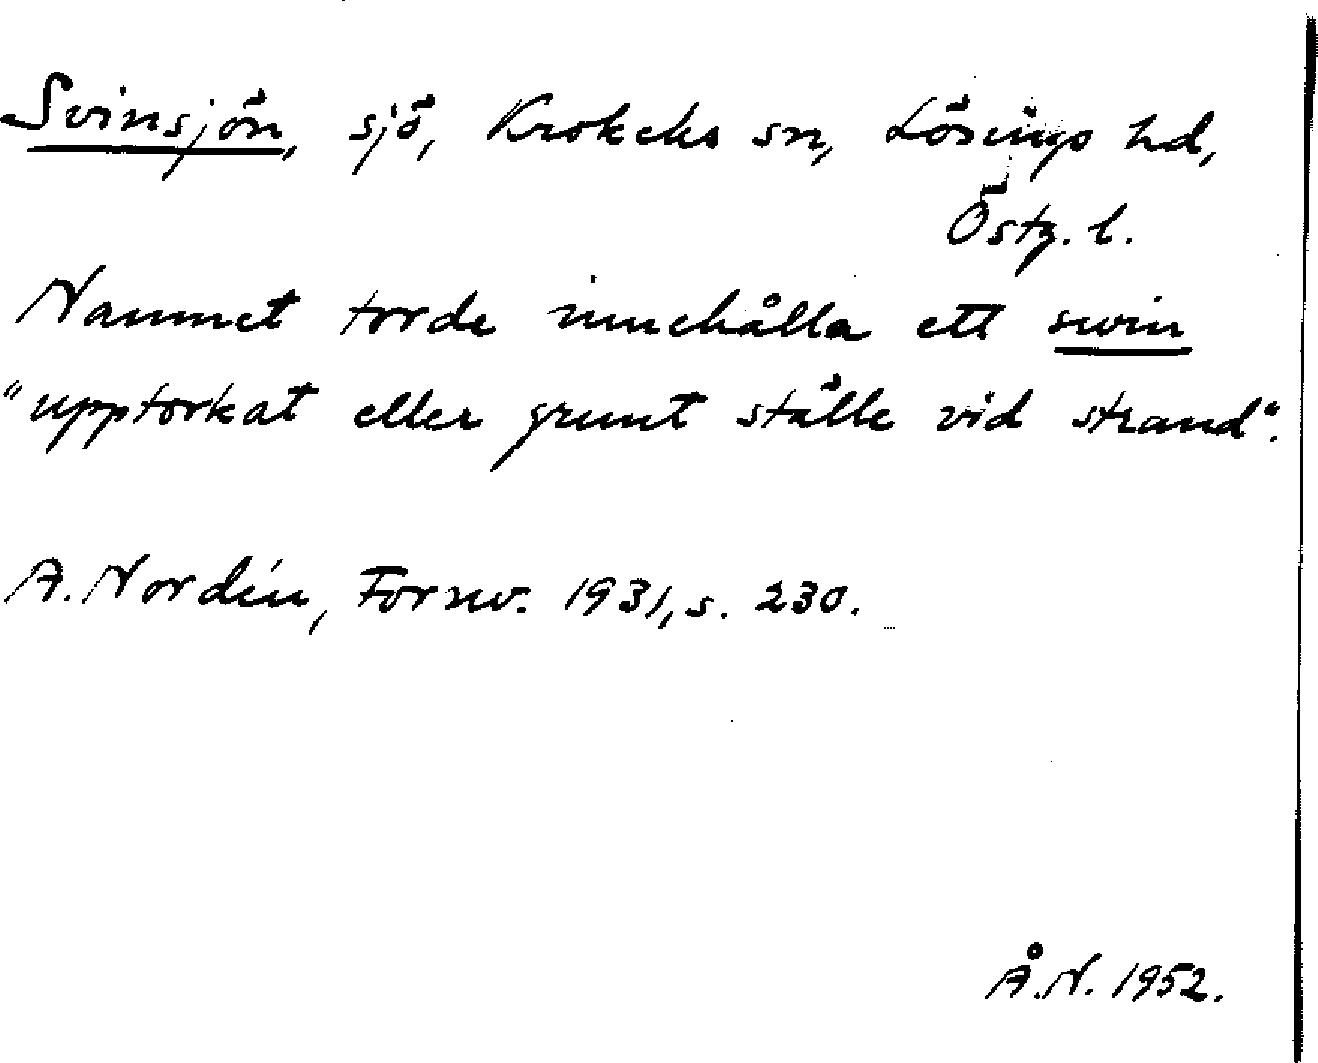 Svinsjön, sjö, Krokeks sn, Lösings hd,
Östg. l.
Namnet torde innehålla ett svin
"upptorkat eller grunt ställe vid strand".
A. Nordén, Fornv. 1931, s. 230.
Å.N. 1952.